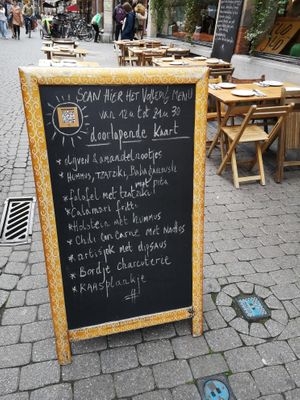 SCAN HIER HET VOLLEDIG MENU
VAN 12u to 21u30
doorlopende kaart
* olijven & amandelnootjes
* Hummus, TZATZIKI, Baba Ganoush
met pitas
* falafel met tzatziki
* Calamari fritti
* Holstein met hummus
* Chili con carne met nachos
* artisjok met dipsaus
* Bordje charcuterie
* KAASplankje